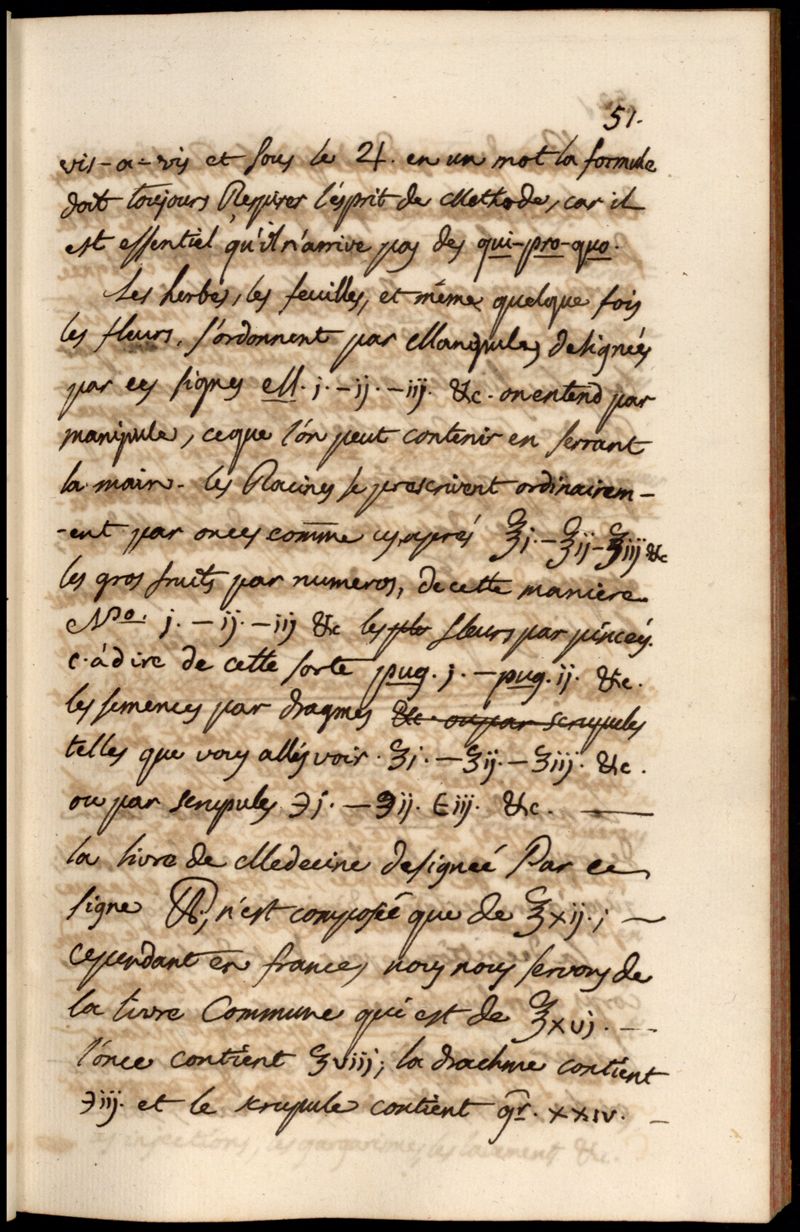 51.
vis-a-vis et sous le 24. en un mot la formule
doit toujours Respirer l'ésprit de Methode, car il
est essentiel qu'il n'arrive pas des qui-pro-quo.
Les herbes, les feuilles, et méme quelque fois
les fleurs, s'ordonnent par Manipules designées
par ces signes M. j. - ij. - iij. &c. on entend par
manipule, ce que l'on peut contenir en serrant
la main. les Racines se prescrivent ordinairem-
-ent par onces comme cy aprés ℥j. - ℥ij - ℥iij &c
les gros fruits par numeros, de cette maniere
Nro. j. - ij. - iij &c les fleurs par pincés.
c. á dire de cette sorte pug. j. - pug. ij. &c.
les semences par dragmes &c. ou par scrupules
telles que vous allés voir. ʒj. - ʒij. - ʒiij. &c.
ou par scrupules ℈j. - ℈ij. ℈iij. &c.
la livre de Medecine designeé Par ce
signe ℔; n'est composée que de ℥xij. ;
cependant en frances nous nous servons de
la livre Commune qui est de ℥xvj.
l'once contient ʒviij; la drachme contient
℈iij. et le scrupule contient gr. xxiv.
injections, les gargarismes, les lavement &c.